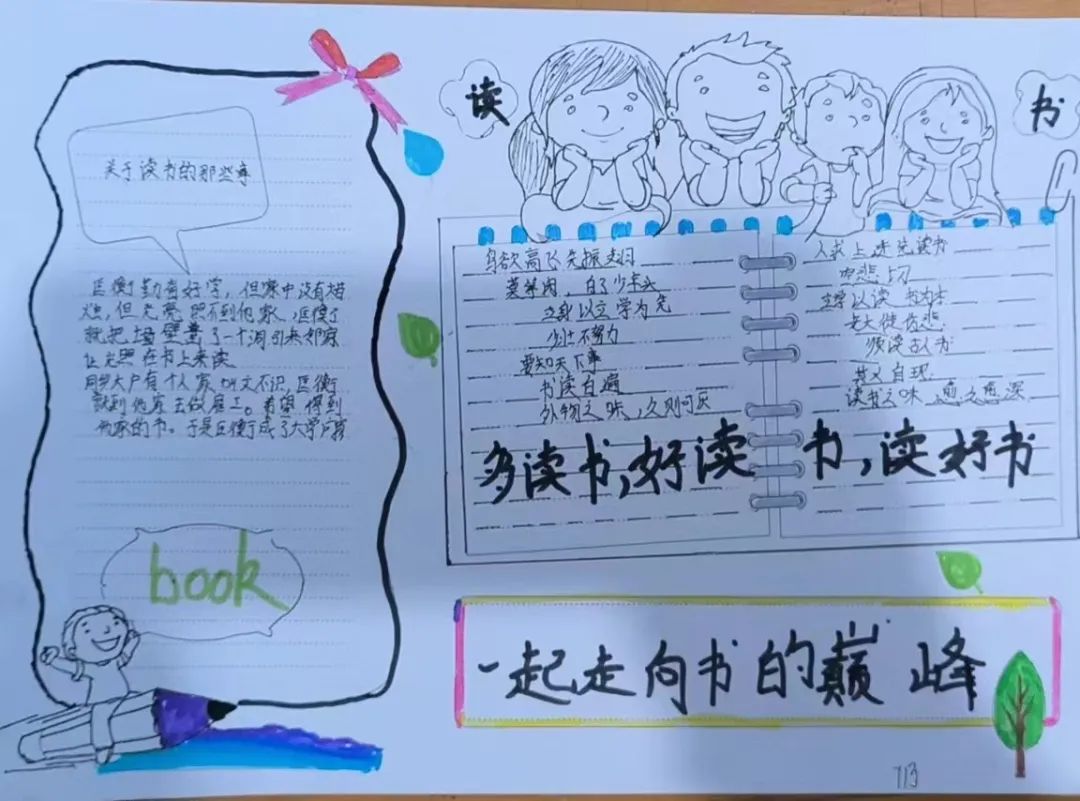 读书
关于读书的那些事
匡衡勤奋好学，但家中没有蜡
烛，但光亮照不到他家，匡衡
就把墙壁凿了一个洞引来邻家
让光照在书上来读
同乡大户有个人家 文不识，匡衡
就到他家去做雇工。希望得到
他家的书。于是匡衡成了大学
book
鸟欲高飞先振翅
人求上进先读书
莫等闲，白了少年头
空悲切
立身以立学为先
立学以读书为本
少壮不努力
老大徒伤悲
要知天下事
须读古人书
书读百遍
其义自现
外物之味，久则可厌
读书之味 愈久愈深
多读书，好读书，读好书
一起走向书的巅峰